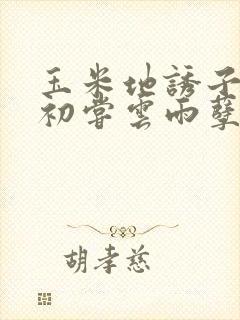 玉米地誘子
初嘗雲雨孽
胡孝慈